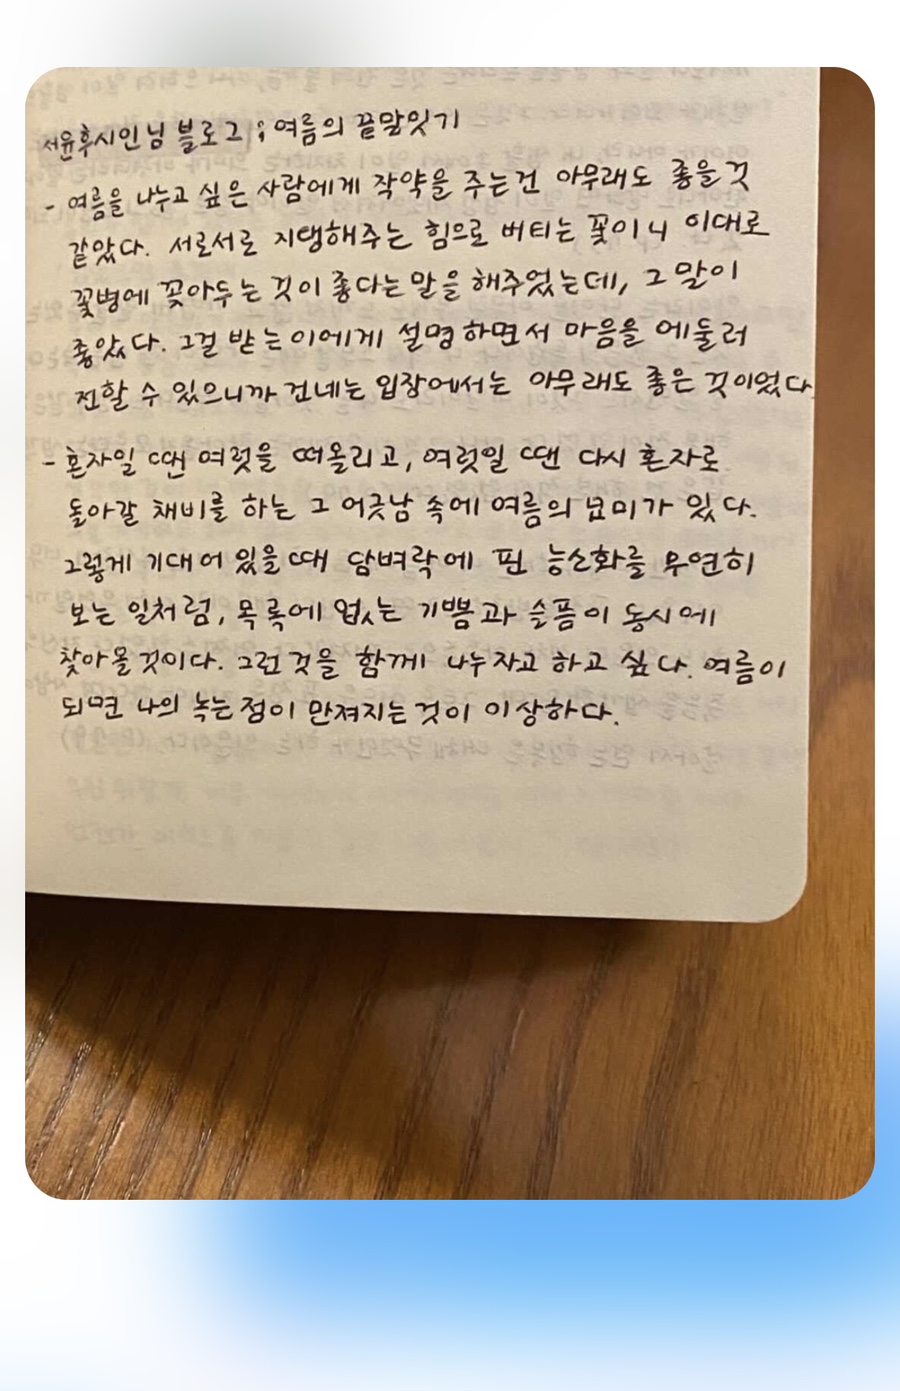 서윤후시인님 블로그 ; 여름의 끝말잇기
- 여름을 나누고 싶은 사람에게 작약을 주는건 아무래도 좋을것
같았다. 서로서로 지탱해주는 힘으로 버티는 꽃이니 이대로
꽃병에 꽂아두는 것이 좋다는 말을 해주었는데, 그 말이
좋았다. 그걸 받는 이에게 설명하면서 마음을 에둘러
전할 수 있으니까 건네는 입장에서는 아무래도 좋은 것이었다.
- 혼자일 땐 여럿을 떠올리고, 여럿일 땐 다시 혼자로
돌아갈 채비를 하는 그 어긋남 속에 여름의 묘미가 있다.
그렇게 기대어 있을 때 담벼락에 핀 능소화를 우연히
보는 일처럼, 목록에 없는 기쁨과 슬픔이 동시에
찾아올 것이다. 그런 것을 함께 나누자고 하고 싶다. 여름이
되면 나의 녹는점이 만져지는 것이 이상하다.